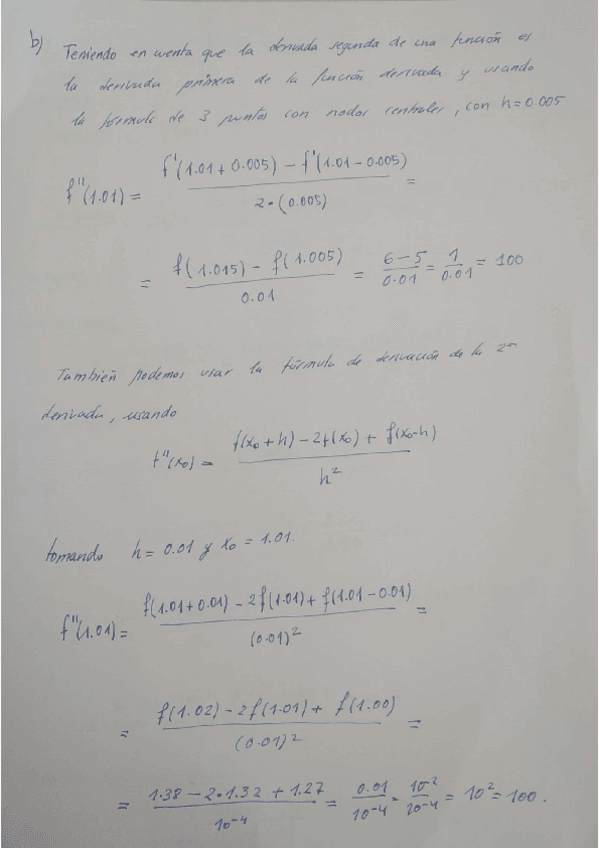 b) Teniendo en cuenta que la derivada segunda de una función es
la derivada primera de la función derivada y usando
la fórmula de 3 puntos con nodos centrales, con h = 0.005
f''(1.01) = \frac{f'(1.01 + 0.005) - f'(1.01 - 0.005)}{2 \cdot (0.005)} =
= \frac{f(1.015) - f(1.005)}{0.01} = \frac{6-5}{0.01} = \frac{1}{0.01} = 100
También podemos usar la fórmula de derivación de la 2ª
derivada, usando
f''(x_0) = \frac{f(x_0 + h) - 2f(x_0) + f(x_0 - h)}{h^2}
tomando h = 0.01 y x_0 = 1.01.
f''(1.01) = \frac{f(1.01 + 0.01) - 2f(1.01) + f(1.01 - 0.01)}{(0.01)^2} =
= \frac{f(1.02) - 2f(1.01) + f(1.00)}{(0.01)^2} =
= \frac{1.38 - 2 \cdot 1.32 + 1.27}{10^{-4}} = \frac{0.01}{10^{-4}} = \frac{10^{-2}}{10^{-4}} = 10^2 = 100.